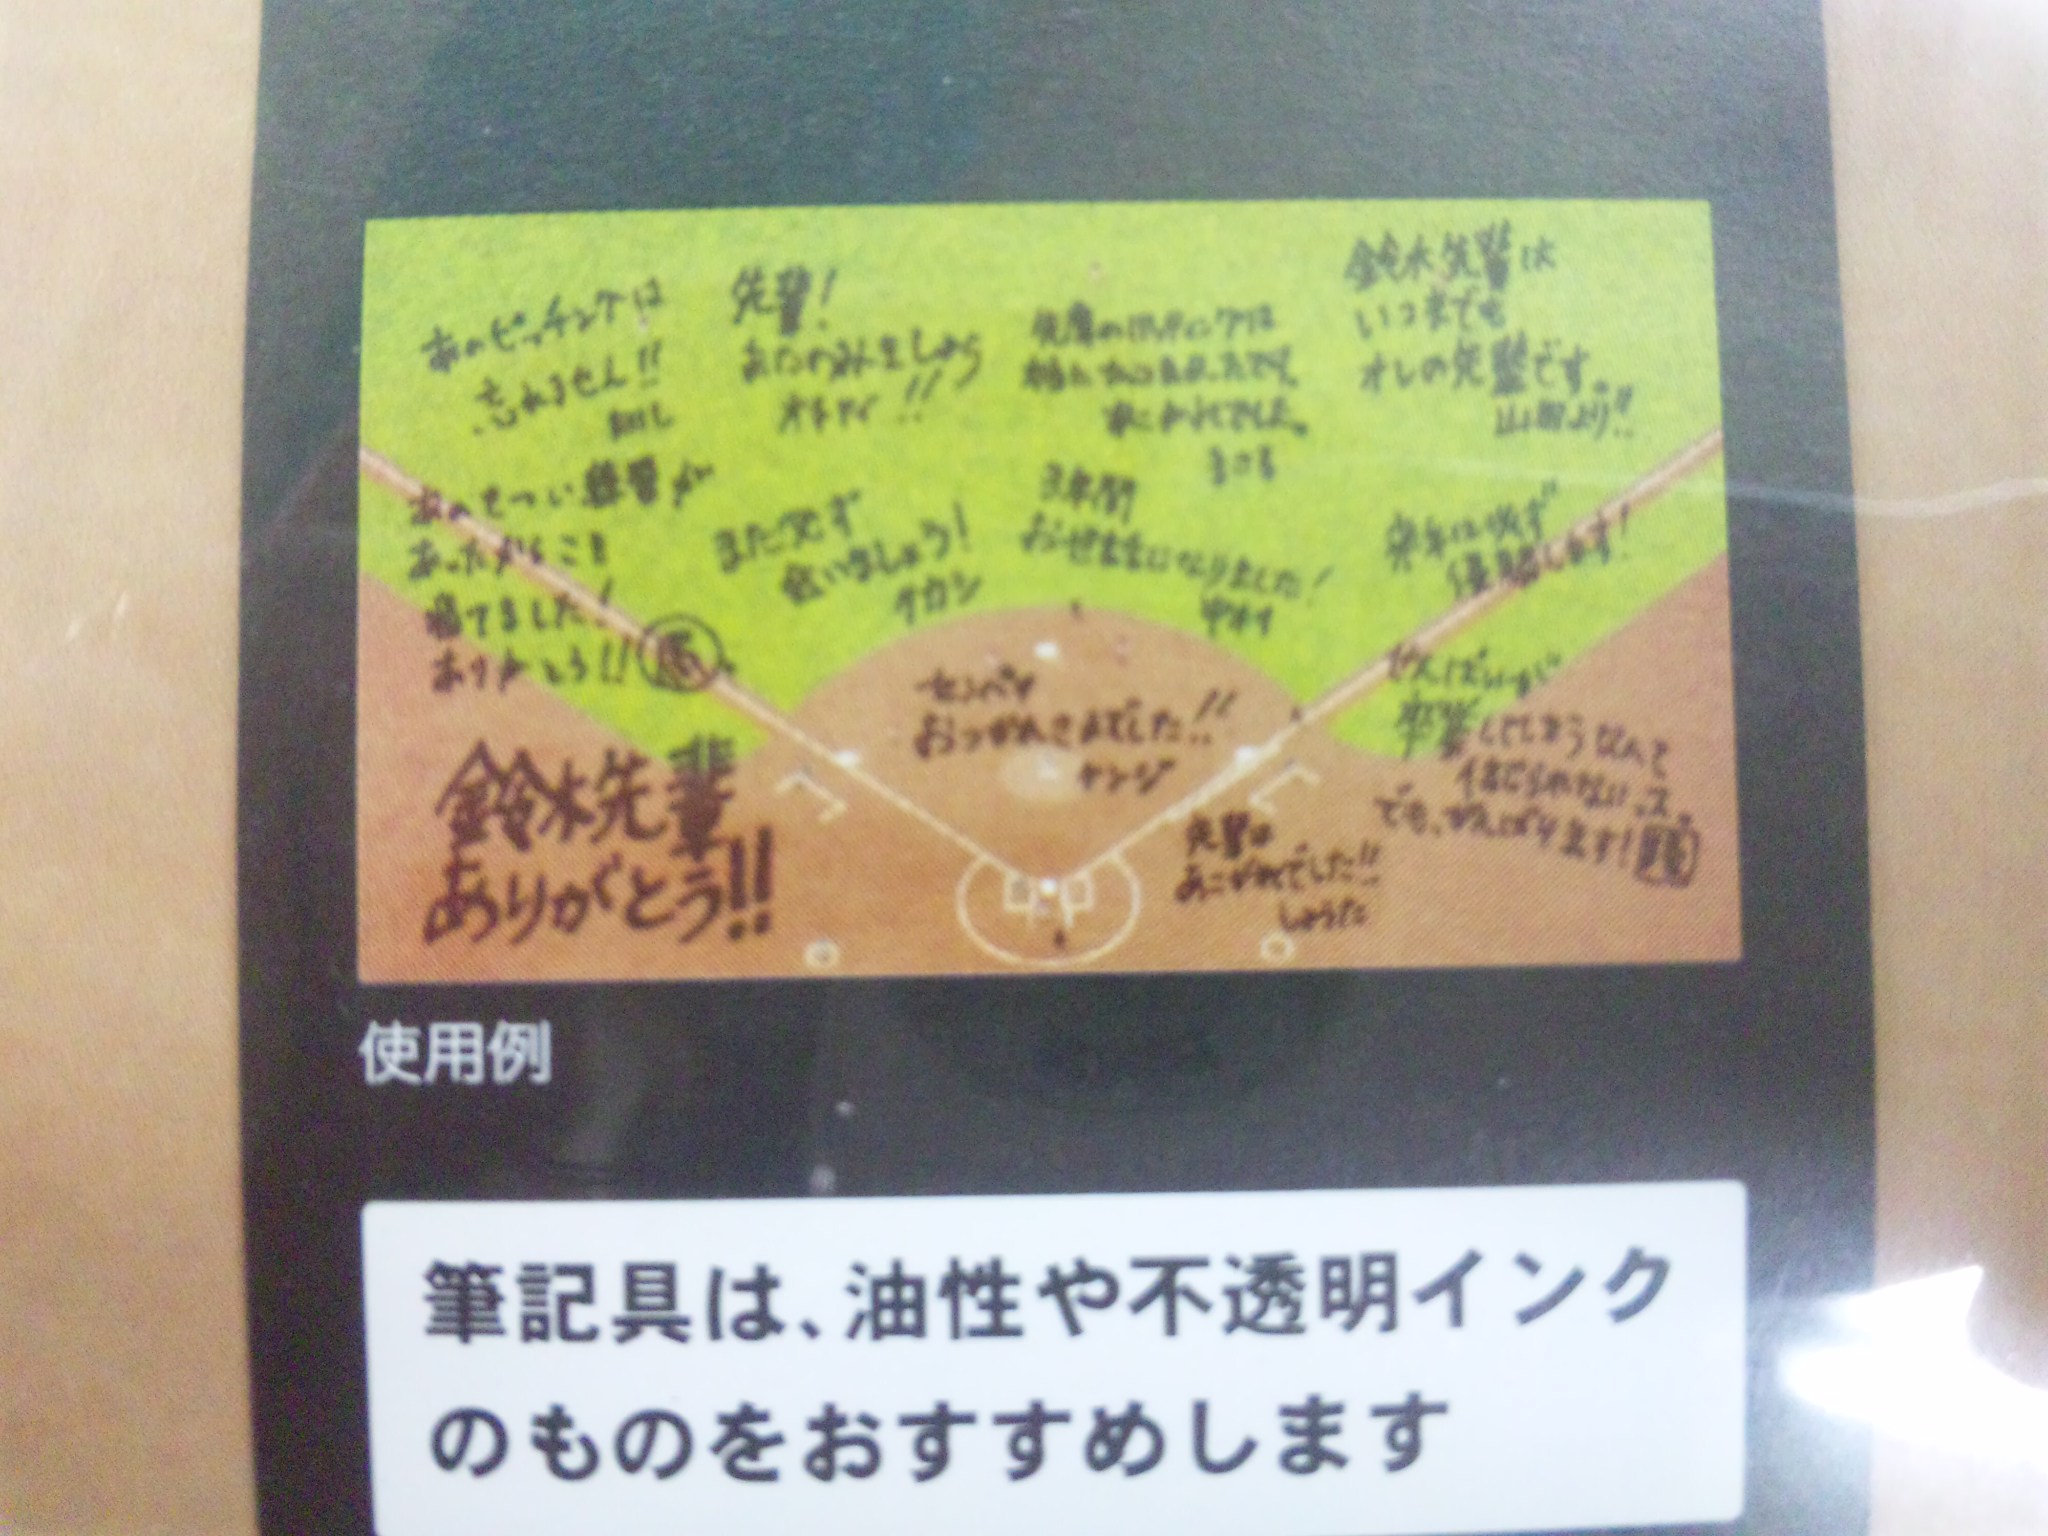 あのピッチングは
忘れません!!
先輩!
オチアイ!!
先輩の
あこがれでした。
まさる
鈴木先輩は
いつまでも
オレの先輩です。
山田より!!
あのきつい練習が
あったからこそ
勝てました!
ありがとう!!
また必ず
会いましょう!
タカシ
3年間
お世話になりました!
来年は必ず
優勝します!
センパイ
おつかれさまでした!!
ケンジ
せんぱいが
卒業してしまうなんて
信じられないっス。
でも、がんばります!
鈴木先輩
ありがとう!!
先輩は
あこがれでした!!
しょうた
使用例
筆記具は、油性や不透明インク
のものをおすすめします